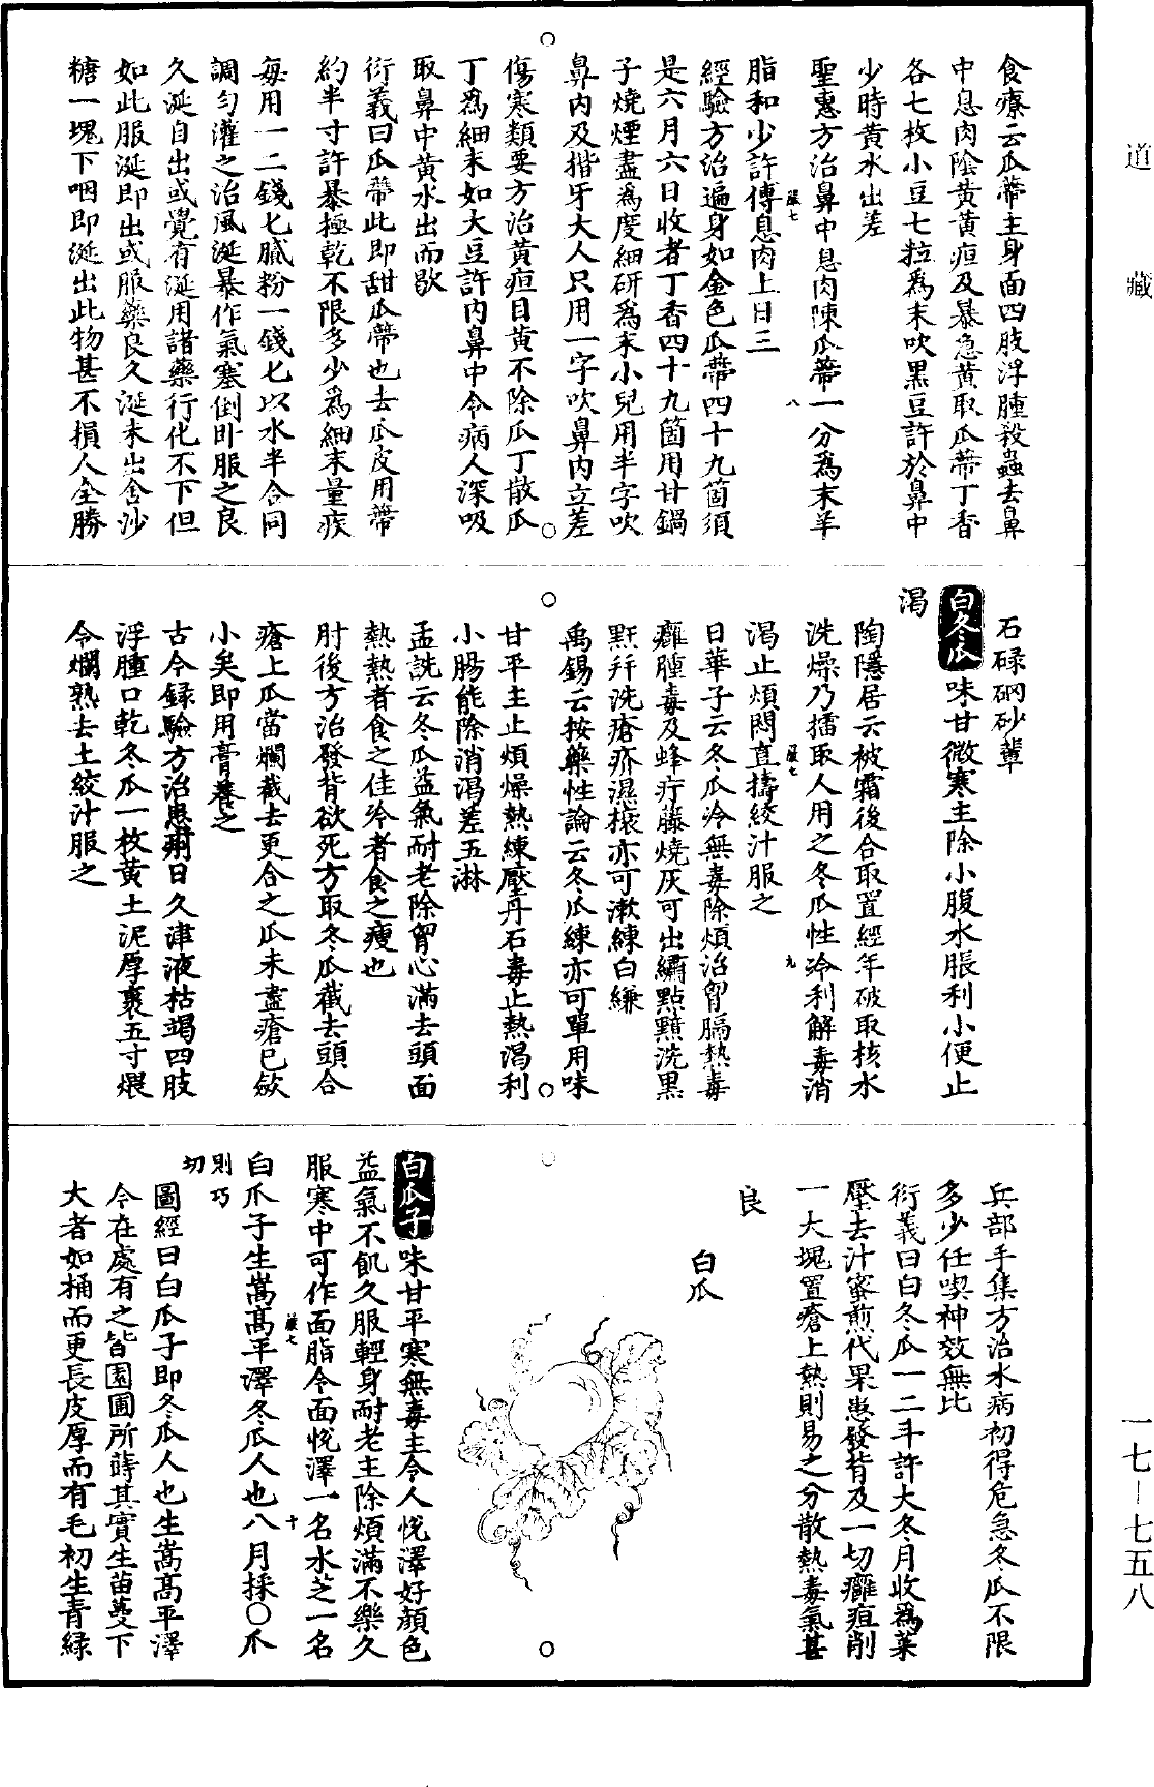 道藏
食療云瓜蔕主身面四肢浮腫殺蟲去鼻
中息肉陰黄黄疸及暴急黄取瓜蔕丁香
各七枚小豆七粒爲末吹黑豆許於鼻中
少時黄水出差
聖惠方治鼻中息肉陳瓜蔕一分爲末羊
脂和少許傅息肉上日三
經驗方治遍身如金色瓜蔕四十九箇須
是六月六日收者丁香四十九箇用甘鍋
子燒煙盡爲度細研爲末小兒用半字吹
鼻内及揩牙大人只用一字吹鼻内立差
傷寒類要方治黄疸目黄不除瓜丁散瓜
丁爲細末如大豆許内鼻中令病人深吸
取鼻中黄水出而歇
衍義曰瓜蔕此即甜瓜蔕也去瓜皮用蔕
約半寸許暴極乾不限多少爲細末量疾
每用一二錢匕膩粉一錢匕以水半合同
調匀灌之治風涎暴作氣塞倒卧服之良
久涎自出或覺有涎用諸藥行化不下但
如此服涎即出或服藥良久涎未出含沙
糖一塊下咽即涎出此物甚不損人全勝
石碌硇砂輩
白冬瓜味甘微寒主除小腹水脹利小便止
渴
陶隱居云被霜後合取置經年破取核水
洗燥乃擂取人用之冬瓜性冷利解毒消
渴止煩悶直擣絞汁服之
日華子云冬瓜冷無毒除煩治胷膈熱毒
癰腫毒及蜂疔藤燒灰可出繡點黯洗黑
䵟并洗瘡疥濕㾴亦可漱練白縑
禹錫云按藥性論云冬瓜練亦可單用味
甘平主止煩燥熱練壓丹石毒止熱渴利
小腸能除消渴差五淋
孟詵云冬瓜益氣耐老除胷心滿去頭面
熱熱者食之佳冷者食之瘦也
肘後方治發背欲死方取冬瓜截去頭合
瘡上瓜當爛截去更合之瓜未盡瘡已斂
小矣即用膏養之
古今録驗方治患痢日久津液枯竭四肢
浮腫口乾冬瓜一枚黄土泥厚裹五寸煨
令爛熟去土絞汁服之
兵部手集方治水病初得危急冬瓜不限
多少任喫神效無比
衍義曰白冬瓜一二斗許大冬月收爲菜
壓去汁蜜煎代果患發背及一切癰疽削
一大塊置瘡上熱則易之分散熱毒氣甚
良
白瓜
白瓜子味甘平寒無毒主令人恱澤好顔色
益氣不飢久服輕身耐老主除煩滿不樂久
服寒中可作面脂令面恱澤一名水芝一名
白爪子生嵩高平澤冬瓜人也八月採○爪
則巧
切
圖經曰白瓜子即冬瓜人也生嵩高平澤
今在處有之皆園圃所蒔其實生苗蔓下
大者如桶而更長皮厚而有毛初生青緑
一七—七五八